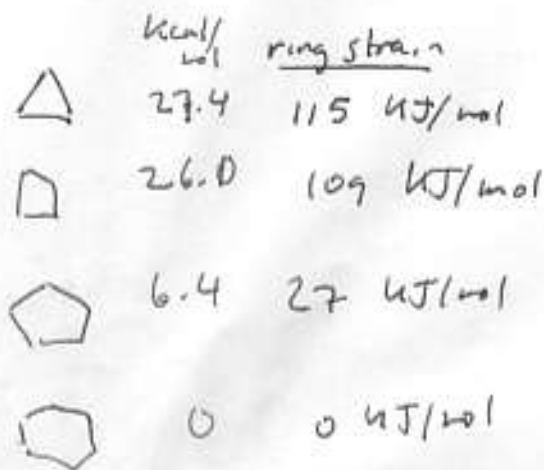 kcal/mol ring strain
27.4 115 KJ/mol
26.0 109 KJ/mol
6.4 27 KJ/mol
0 0 KJ/mol